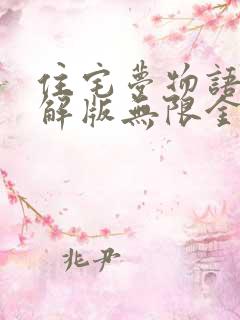 住宅夢物語
解版無限金
兆尹